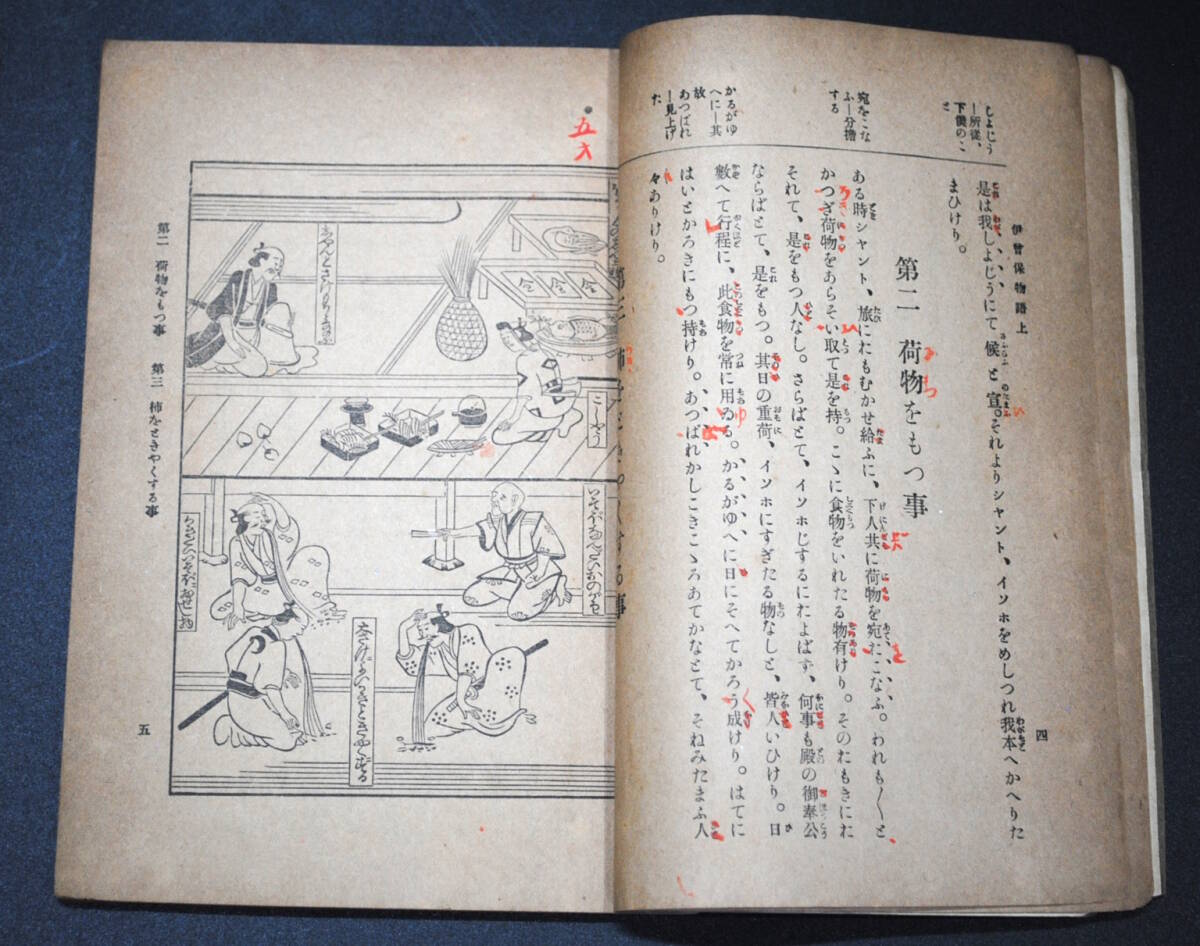 伊曾保物語上
四
是は我しよじうにて候と宣。それよりシャント、イソホをめしつれ我本へかへりた
まひけり。
第二 荷物をもつ事
ある時シャント、旅におもむかせ給ふに、下人共に荷物を宛おこなふ。われも〱と
かつぎ荷物をあらそい取て是を持。こゝに食物をいれたる物有けり。そのおもきにお
それて、是をもつ人なし。さらばとて、イソホじするにおよばず、何事も殿の御奉公
ならばとて、是をもつ。其日の重荷、イソホにすぎたる物なしと、皆人いひけり。日
數へて行程に、此食物を常に用ゐる。かるがゆへに日にそへてかろう成けり。はてに
はいとかろきにもつ持けり。あつぱれかしこきこゝろあてかなとて、そねみたまふ人
々ありけり。
しよじう
―所從、
下僕のこ
と
宛をこな
ふ―分擔
する
かるがゆ
へに―其
故
あつぱれ
―見上げ
た
五オ
第二 荷物をもつ事 第三 柿をときやくする事
五